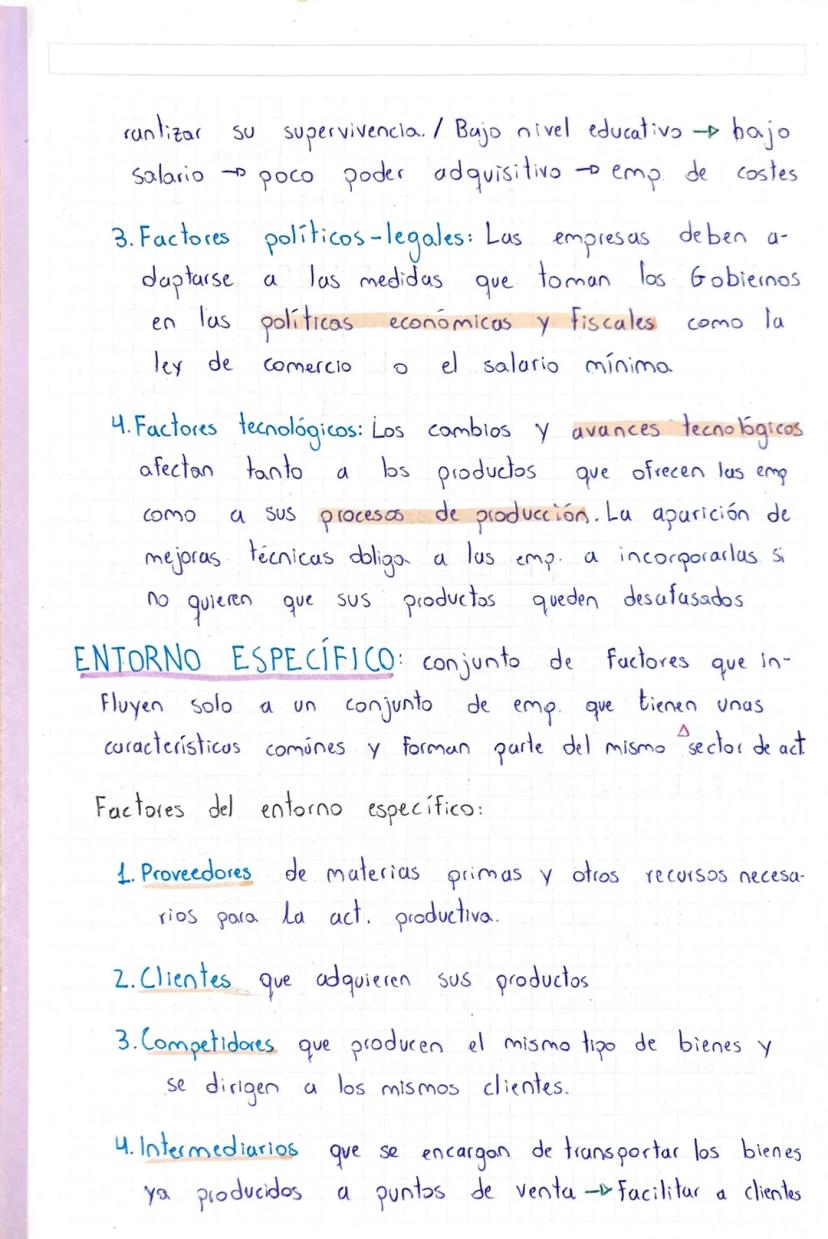 rantizar su supervivencia. / Bajo nivel educativo → bajo
salario → poco poder adquisitivo → emp. de costes
3. Factores políticos-legales: Las empresas deben a-
daptarse a las medidas que toman los Gobiernos
en las políticas económicas y fiscales como la
ley de comercio o el salario mínimo.
4. Factores tecnológicos: Los cambios y avances tecnológicos
afectan tanto a los productos que ofrecen las emp
como a sus procesos de producción. La aparición de
mejoras técnicas obliga a las emp. a incorporarlas si
no quieren que sus productos queden desafasados
ENTORNO ESPECÍFICO: conjunto de factores que in-
fluyen solo a un conjunto de emp. que tienen unas
característicos comúnes y forman parte del mismo sector de act
Factores del entorno específico:
1. Proveedores de materias primas y otros recursos necesa-
rios para la act. productiva.
2. Clientes que adquieren sus productos
3. Competidores que producen el mismo tipo de bienes y
se dirigen a los mismos clientes.
4. Intermediarios que se encargan de transportar los bienes
ya producidos a puntos de venta → Facilitar a clientes